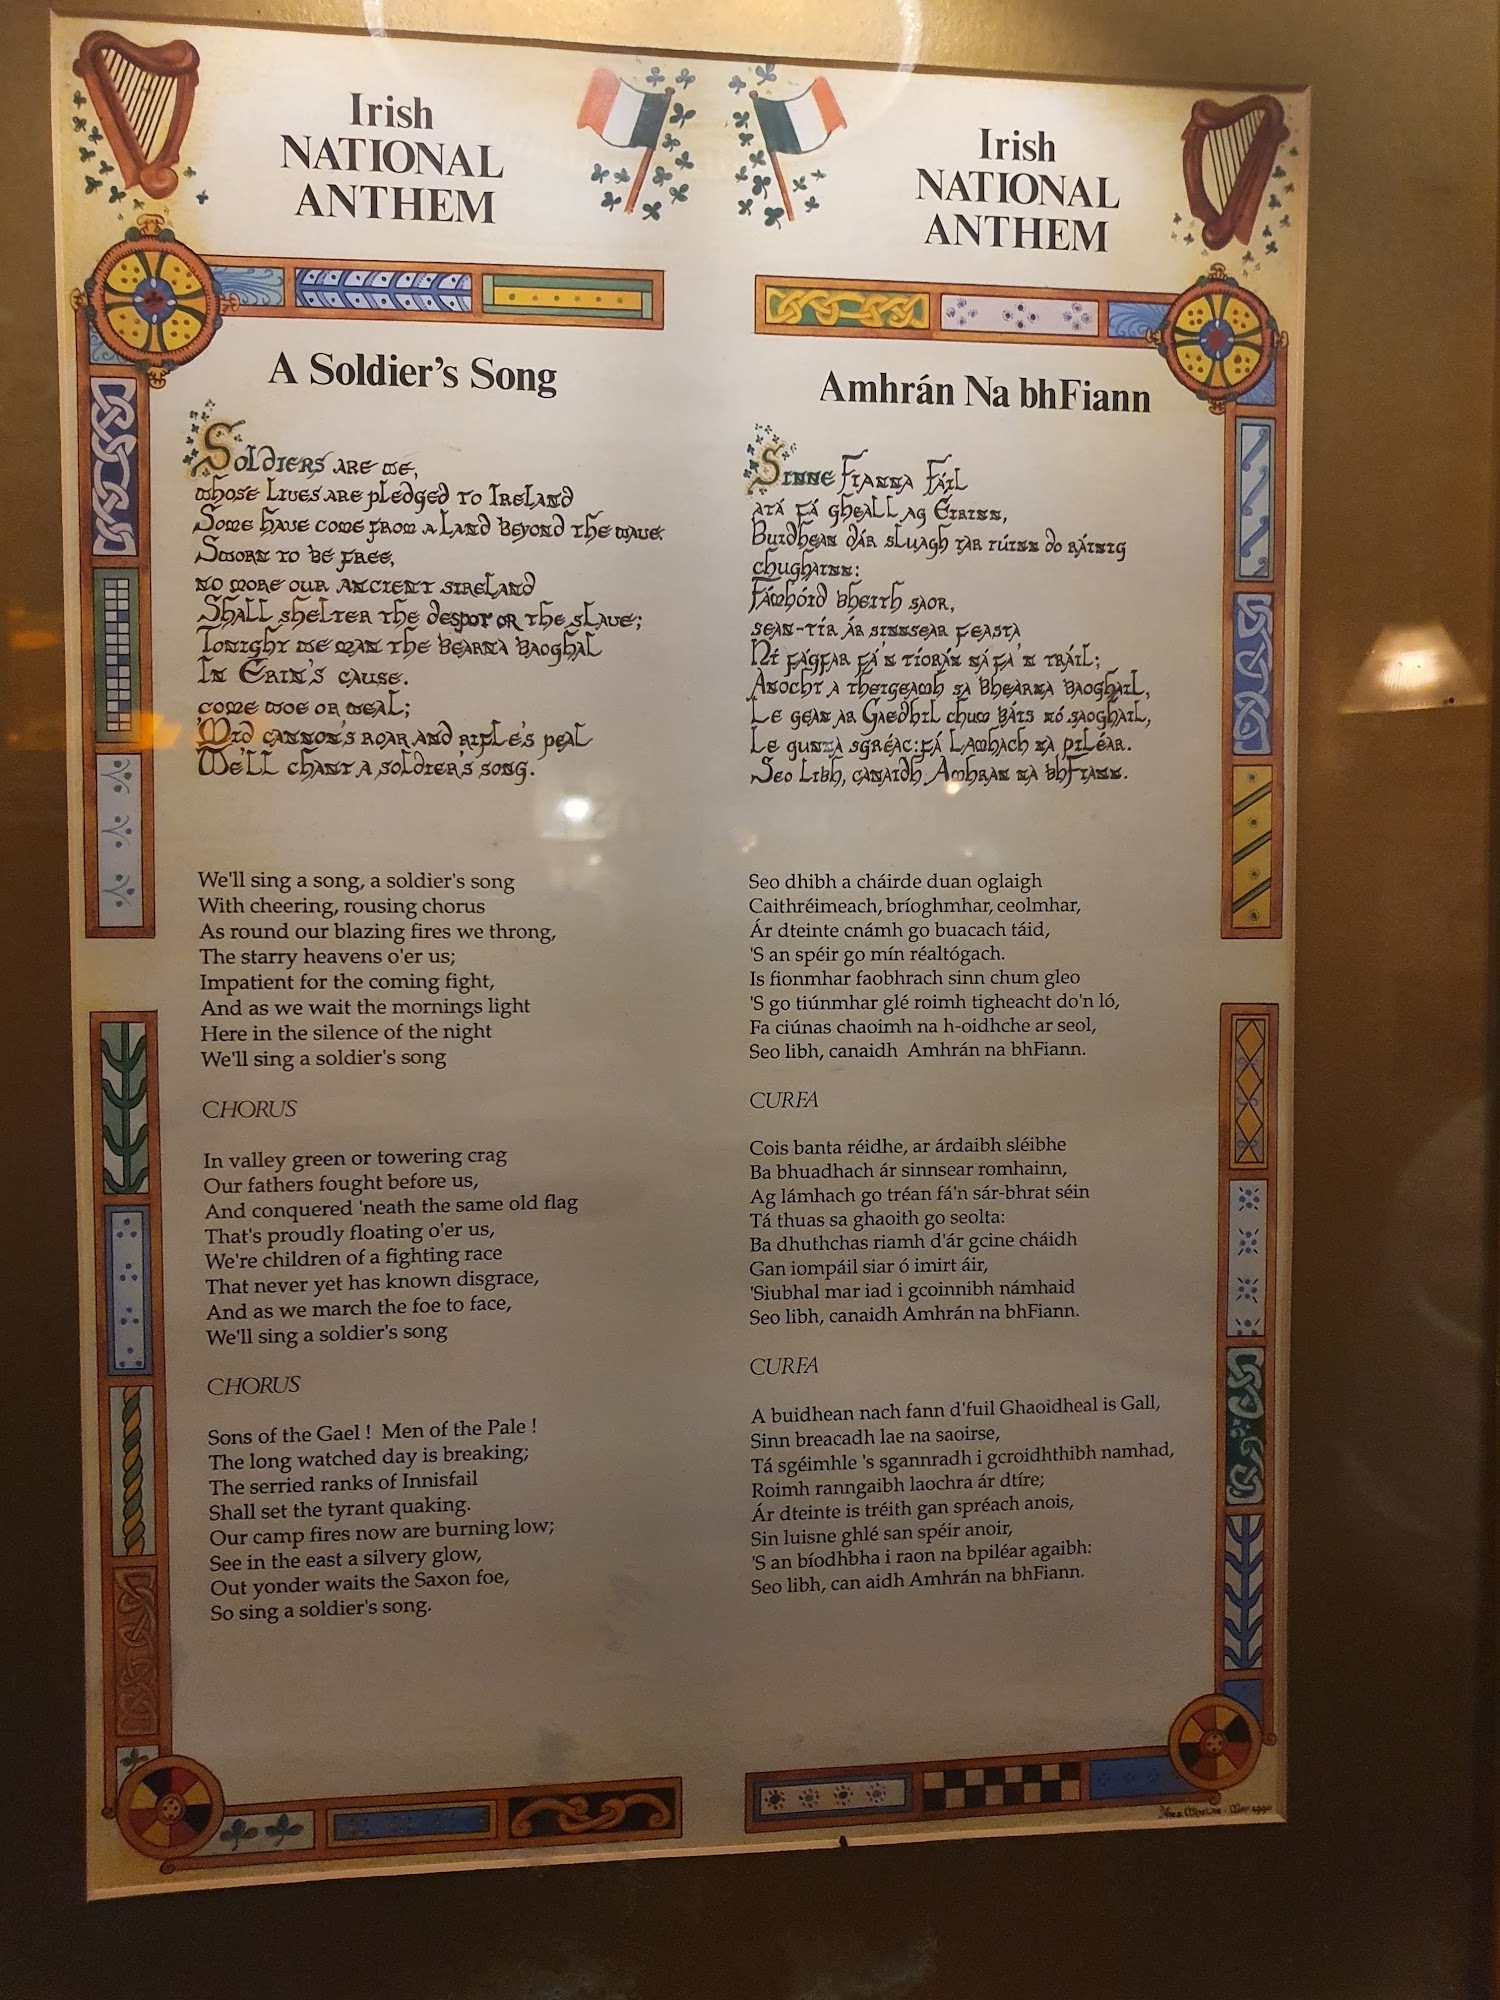 Irish
NATIONAL
ANTHEM
A Soldier's Song
Soldiers are we,
whose lives are pledged to Ireland
Some have come from a land beyond the wave.
Sworn to be free,
no more our ancient sireland
Shall shelter the despot or the slave;
Tonight we man the bearna baoghal
In Erin's cause.
come woe or weal;
'Mid cannon's roar and rifle's peal
We'll chant a soldier's song.
We'll sing a song, a soldier's song
With cheering, rousing chorus
As round our blazing fires we throng,
The starry heavens o'er us;
Impatient for the coming fight,
And as we wait the mornings light
Here in the silence of the night
We'll sing a soldier's song
CHORUS
In valley green or towering crag
Our fathers fought before us,
And conquered 'neath the same old flag
That's proudly floating o'er us,
We're children of a fighting race
That never yet has known disgrace,
And as we march the foe to face,
We'll sing a soldier's song
CHORUS
Sons of the Gael ! Men of the Pale !
The long watched day is breaking;
The serried ranks of Innisfail
Shall set the tyrant quaking.
Our camp fires now are burning low;
See in the east a silvery glow,
Out yonder waits the Saxon foe,
So sing a soldier's song.
Irish
NATIONAL
ANTHEM
Amhrán Na bhFiann
Sinne Fianna Fáil
atá fá gheall ag Éirinn,
Buidhean dár sluagh tar rúinn do ráinig
chughainn:
Fámhóid bheith saor,
sean-tír ár sinnsear feasta
Ní fágfar fá'n tíorán ná fá'n tráil;
Anocht a theigeamh sa bhearna baoghail,
Le gean ar Gaedhil chum báis nó saoghail,
Le gunna sgréac: fá lamhach na piléar.
Seo libh, canaidh Amhran na bhFiann.
Seo dhibh a cháirde duan oglaigh
Caithréimeach, bríoghmhar, ceolmhar,
Ár dteinte cnámh go buacach táid,
'S an spéir go mín réaltógach.
Is fionmhar faobhrach sinn chum gleo
'S go tiúnmhar glé roimh tigheacht do'n ló,
Fa ciúnas chaoimh na h-oidhche ar seol,
Seo libh, canaidh Amhrán na bhFiann.
CURFA
Cois banta réidhe, ar árdaibh sléibhe
Ba bhuadhach ár sinnsear romhainn,
Ag lámhach go tréan fá'n sár-bhrat séin
Tá thuas sa ghaoith go seolta:
Ba dhuthchas riamh d'ár gcine cháidh
Gan iompáil siar ó imirt áir,
'Siubhal mar iad i gcoinnibh námhaid
Seo libh, canaidh Amhrán na bhFiann.
CURFA
A buidhean nach fann d'fuil Ghaoidheal is Gall,
Sinn breacadh lae na saoirse,
Tá sgéimhle 's sgannradh i gcroidhthibh namhad,
Roimh ranngaibh laochra ár dtíre;
Ár dteinte is tréith gan spréach anois,
Sin luisne ghlé san spéir anoir,
'S an bíodhbha i raon na bpiléar agaibh:
Seo libh, can aidh Amhrán na bhFiann.
1990